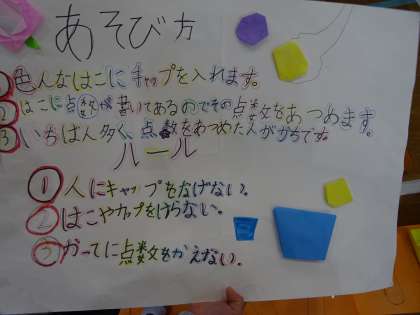 あそび方
①色んなはこにキャップを入れます。
②はこに点数が書いてあるのでその点数をあつめます。
③いちばん多く、点数をあつめた人がかちです。
ルール
①人にキャップをなげない。
②はこやカップをけらない。
③かってに点数をかえない。